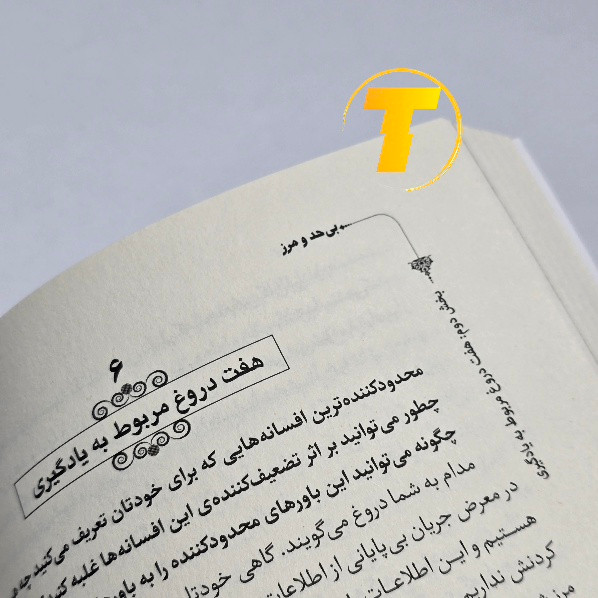 T
بی‌حد و مرز
بخش دوم: هفت دروغ مربوط به یادگیری
۶
هفت دروغ مربوط به یادگیری
محدودکننده‌ترین افسانه‌هایی که برای خودتان تعریف می‌کنید چه
چطور می‌توانید بر اثر تضعیف‌کننده‌ی این افسانه‌ها غلبه کنید
چگونه می‌توانید این باورهای محدودکننده را به باورهای
مدام به شما دروغ می‌گویند. گاهی خودتان
در معرض جریان بی‌پایانی از اطلاعات
هستیم و این اطلاعات
کردنش نداریم
مرز